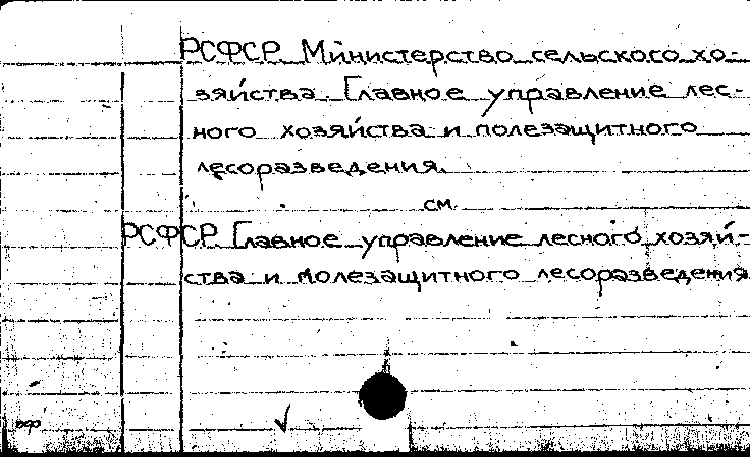 РСФСР. Министерство сельского хо-
зяйства. Главное управление лес-
ного хозяйства и полезащитного
лесоразведения.
см.
РСФСР. Главное управление лесного хозяй-
ства и полезащитного лесоразведения